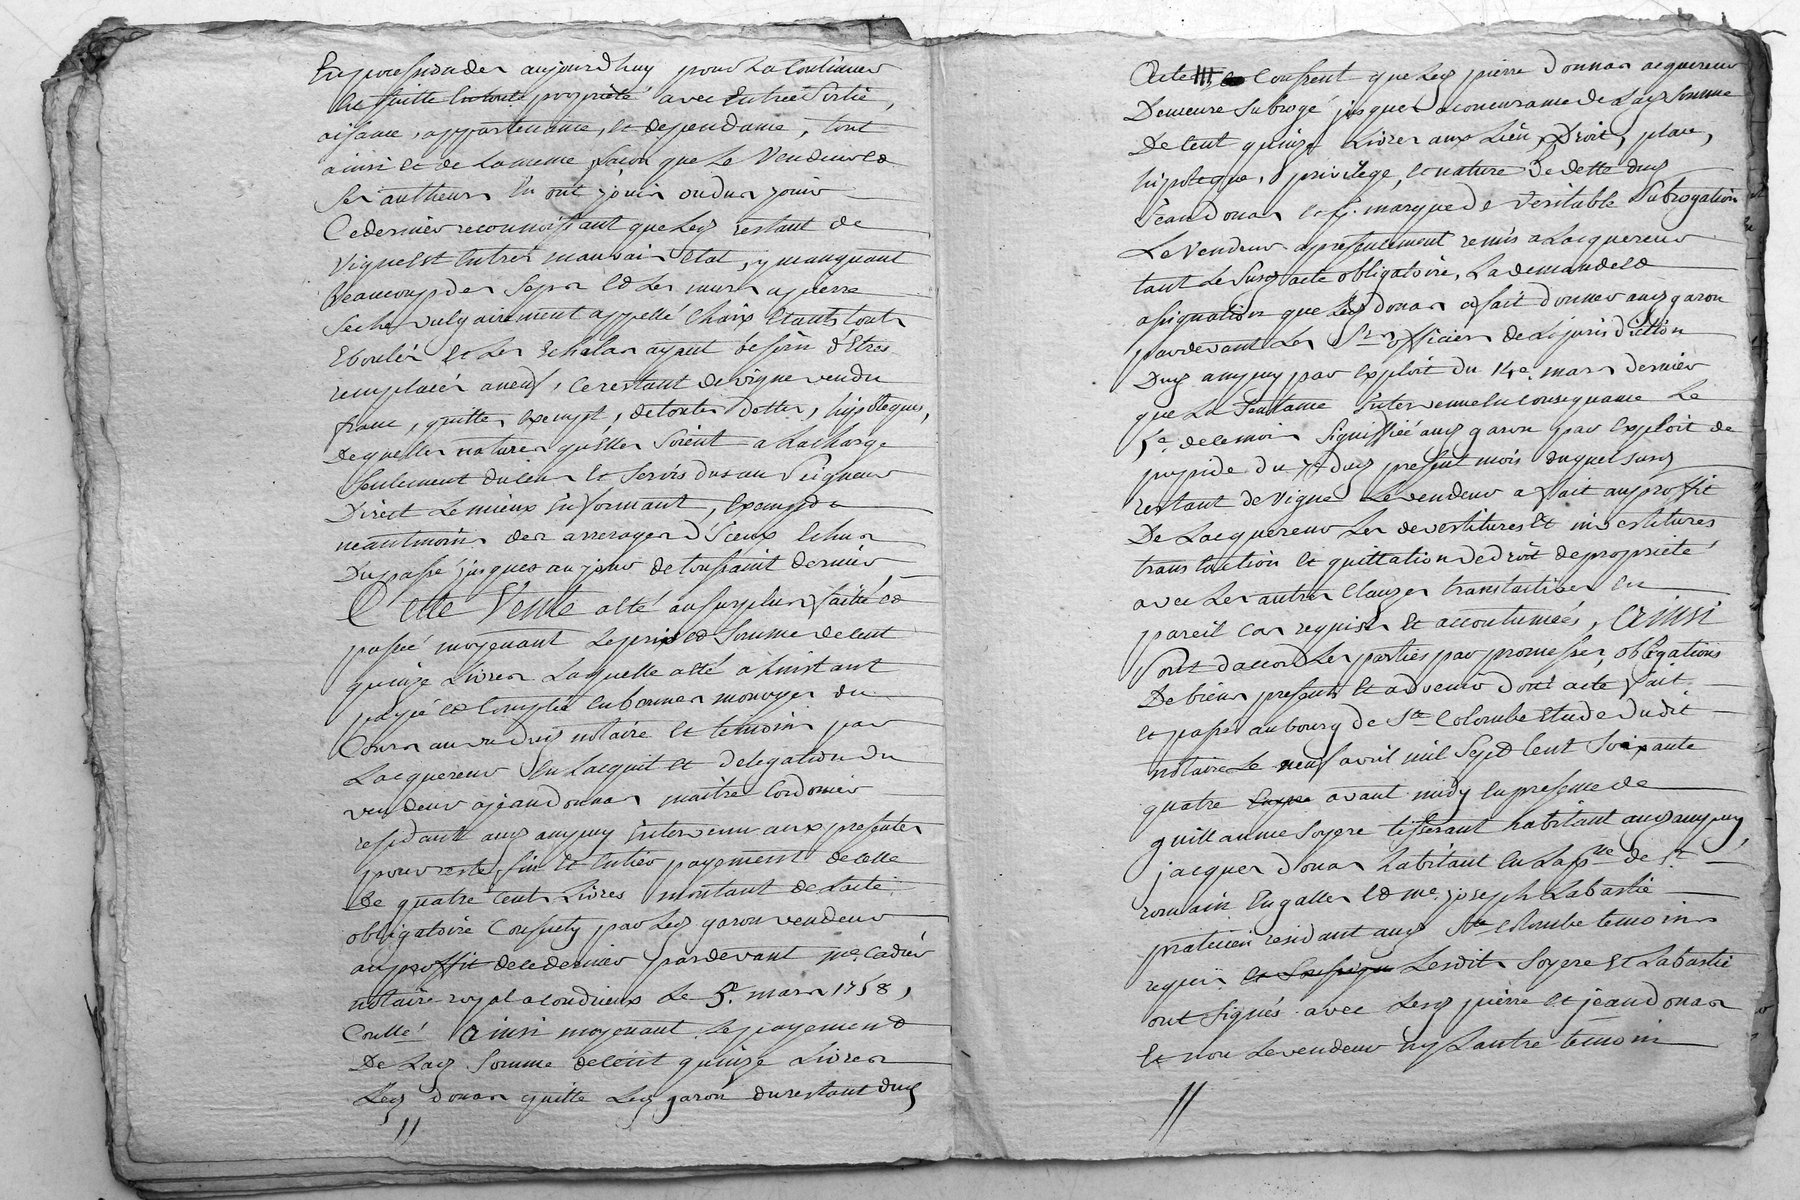 En possession des aujourd'huy pour la continuer
de suitte en toute proprieté avec entrée sortie,
aisance, appartenance, et dependance, tout
ainsi et de la meme façon que le Vendeur et
ses autheurs en ont jouis ou du jouir
Ce dernier reconnoissant que led restant de
vigne est en tres mauvais etat, y manquant
beaucoup de seps et les murs a pierre
seche vulgairement appellé chaix etants tous
eboulés et les echalas ayant besoin d'Etres
remplacés a neuf, ce restant de vigne vendu
franc, quitte, exempt, de toutes dettes, hipoteques,
de quelles natures qu'elles soient a la charge
seulement du cens et servis dus au Seigneur
Direct le mieux informant, exempt
neantmoins des arrerages d'iceux echus
du passé jusques au jour de toussaint dernier
Cette Vente a eté au surplus faitte et
passée moyenant le prix et somme de cent
quinze Livres laquelle a eté a l'instant
payée et comptée en bonnes monoyes du
Cours au vu du notaire et temoins par
Lacquereur en lacquit et delegation du
vendeur a jean donnas maitre Cordonier
residant aud ampuy intervenu aux presentes
pour reste, fin et entier payement de celle
de quatre cent Livres montant de l'acte
obligatoire Consenty par led garon vendeur
au proffit de ce dernier pardevant me. Cadier
notaire royal a condrieux le 5e. mars 1758,
Conllé ainsi moyenant le payement
De lad somme de cent quinze Livres
Led donas quitte led garon du restant dud
//
Acte consent que led pierre donnas acquereur
Demeure subrogé jusques a concurance de lad somme
De cent quinze Livres aux lieu, Droit, place,
hipoteque, privilege, et nature de dette dud
jean donas marque de veritable subrogation
Le Vendeur a presentement remis a lacquereur
tant le susd acte obligatoire, la demande et
assignation que led donas a fait donner aud garon
pardevant les Srs. officiers de la jurisdiction
Dud ampuy par exploit du 14e. mars dernier
que la Sentance intervenue en consequance le
de ce mois signiffiée aud garon par exploit de
du 7e dud present mois duquel susd
restant de vigne Le vendeur a fait au proffit
De Lacquereur les devestitures et investitures
translation et quittation de droit de proprieté
avec les autres clauzes translatives en
pareil cas requises et accoutumées, ainsi
sont d'accord les parties par promesses, obligations
De biens presents et advenir dont acte, fait
et passé au bourg de Ste Colombe Etude dudit
notaire le neuf avril mil sept cent soixante
quatre avant midy en presence de
guillaume Soyere tisserant habitant aud ampuy,
jacques donas habitant en la psse de St
romain Engalles et me. joseph Labastie
praticien residant aud Ste colombe temoins
requis et soussignés Lesdits Soyere et Labastie
ont signés avec lesd pierre et jean donas
Et non le vendeur ny l'autre temoin
//